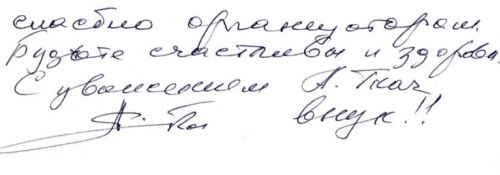 спасбио организаторам.
Будьте счастливы и здоровы.
С уважением А. Ткач
внук!!